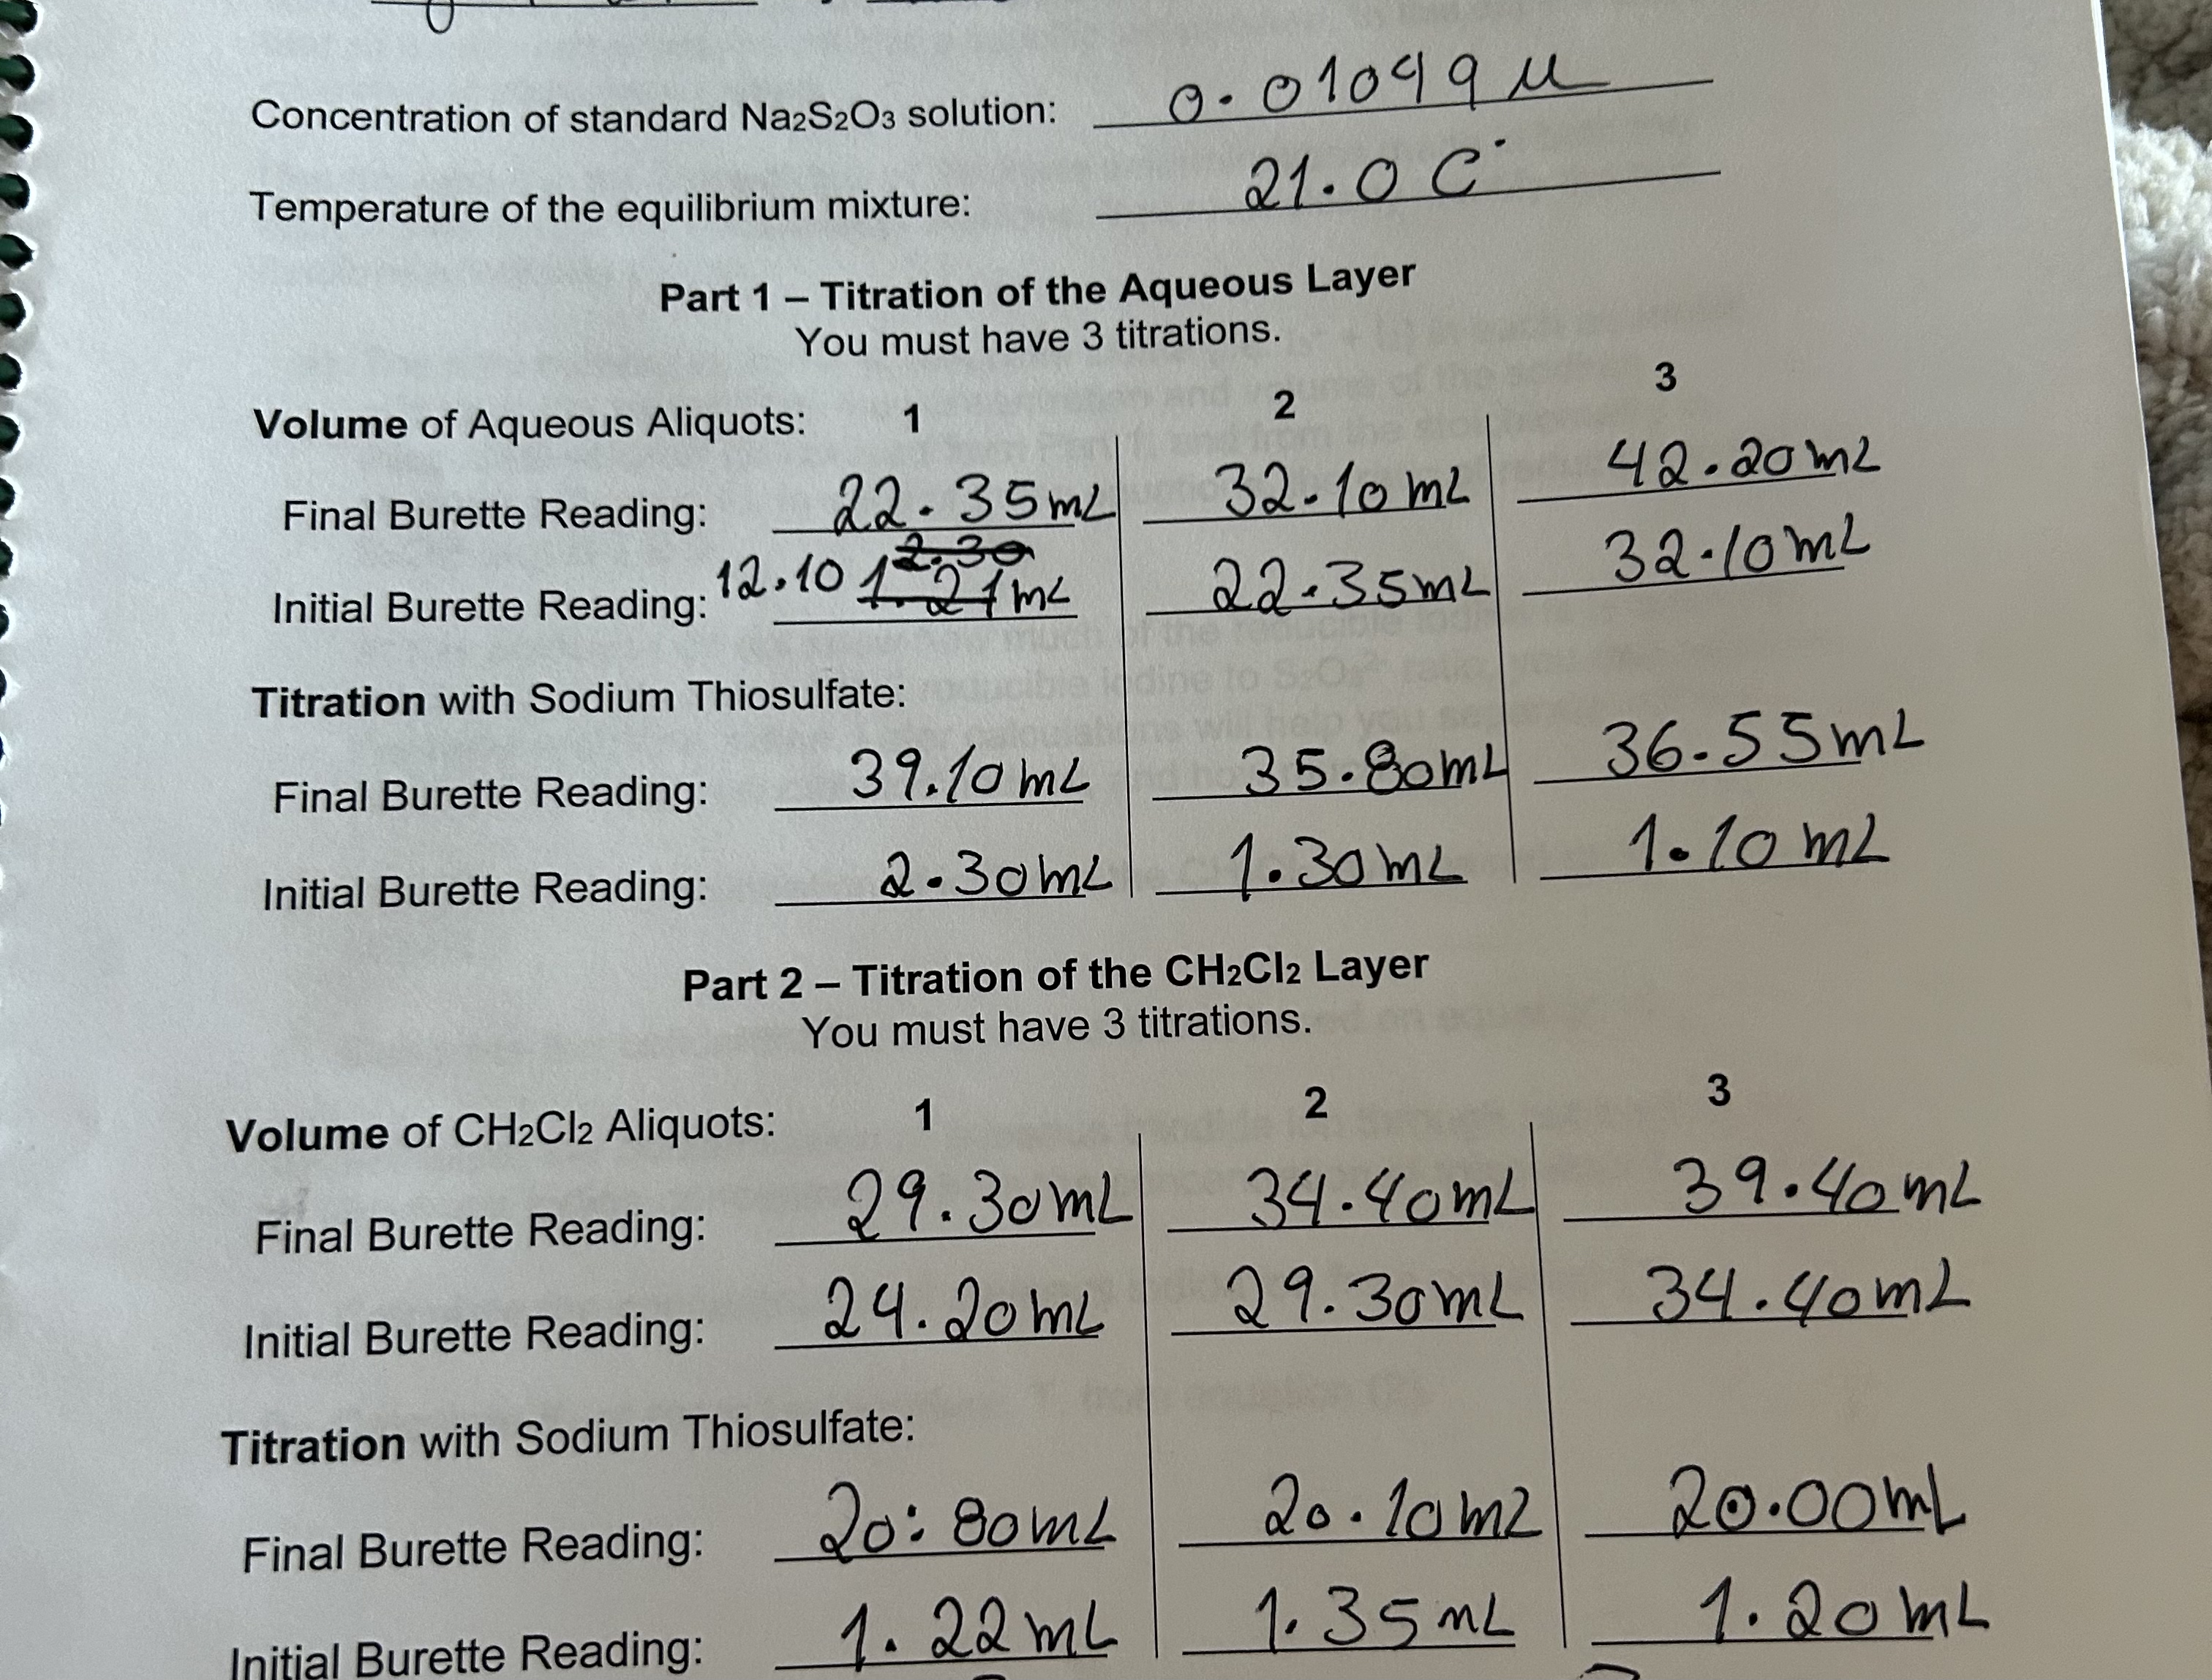 Concentration of standard Na2S2O3 solution: 0.01049 M
Temperature of the equilibrium mixture: 21.0 C°
Part 1 – Titration of the Aqueous Layer
You must have 3 titrations.
Volume of Aqueous Aliquots: 1 2 3
Final Burette Reading: 22.35mL 32.10mL 42.20mL
2.30
Initial Burette Reading: 12.10 1.21mL 22.35mL 32.10mL
Titration with Sodium Thiosulfate:
Final Burette Reading: 39.10mL 35.80mL 36.55mL
Initial Burette Reading: 2.30mL 1.30mL 1.10mL
Part 2 – Titration of the CH2Cl2 Layer
You must have 3 titrations.
Volume of CH2Cl2 Aliquots: 1 2 3
Final Burette Reading: 29.30mL 34.40mL 39.40mL
Initial Burette Reading: 24.20mL 29.30mL 34.40mL
Titration with Sodium Thiosulfate:
Final Burette Reading: 20.80mL 20.10mL 20.00mL
Initial Burette Reading: 1.22mL 1.35mL 1.20mL